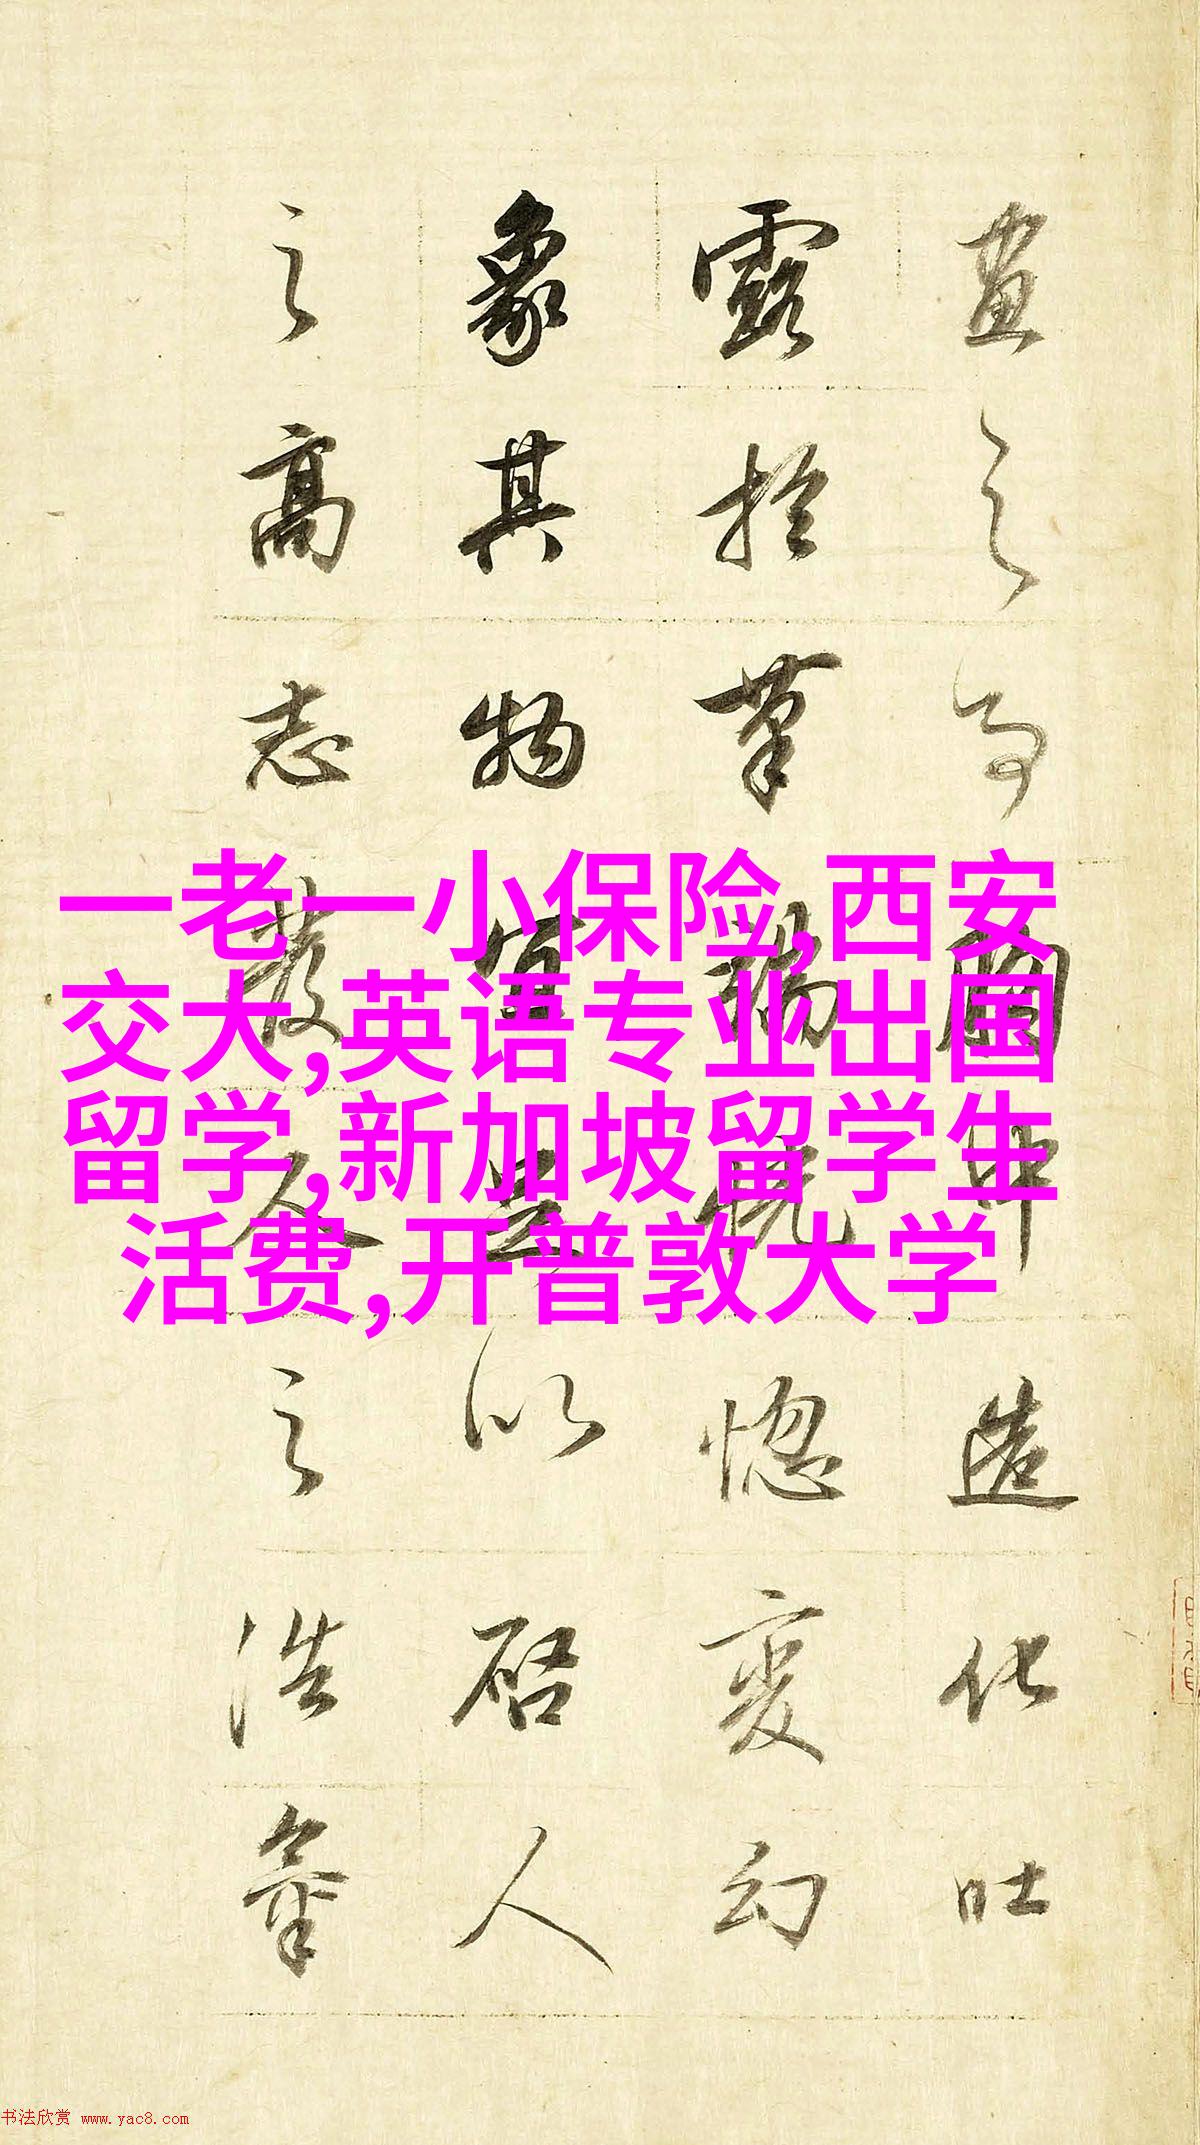 畫之為
露於筆端恍惚變幻
象其物宜足以啓人
之高志發人之浩氣
圖牟造化吐
一老一小保险,西安
交大,英语专业出国
留学,新加坡留学生
活费,开普敦大学
书法欣赏 www.yac8.com